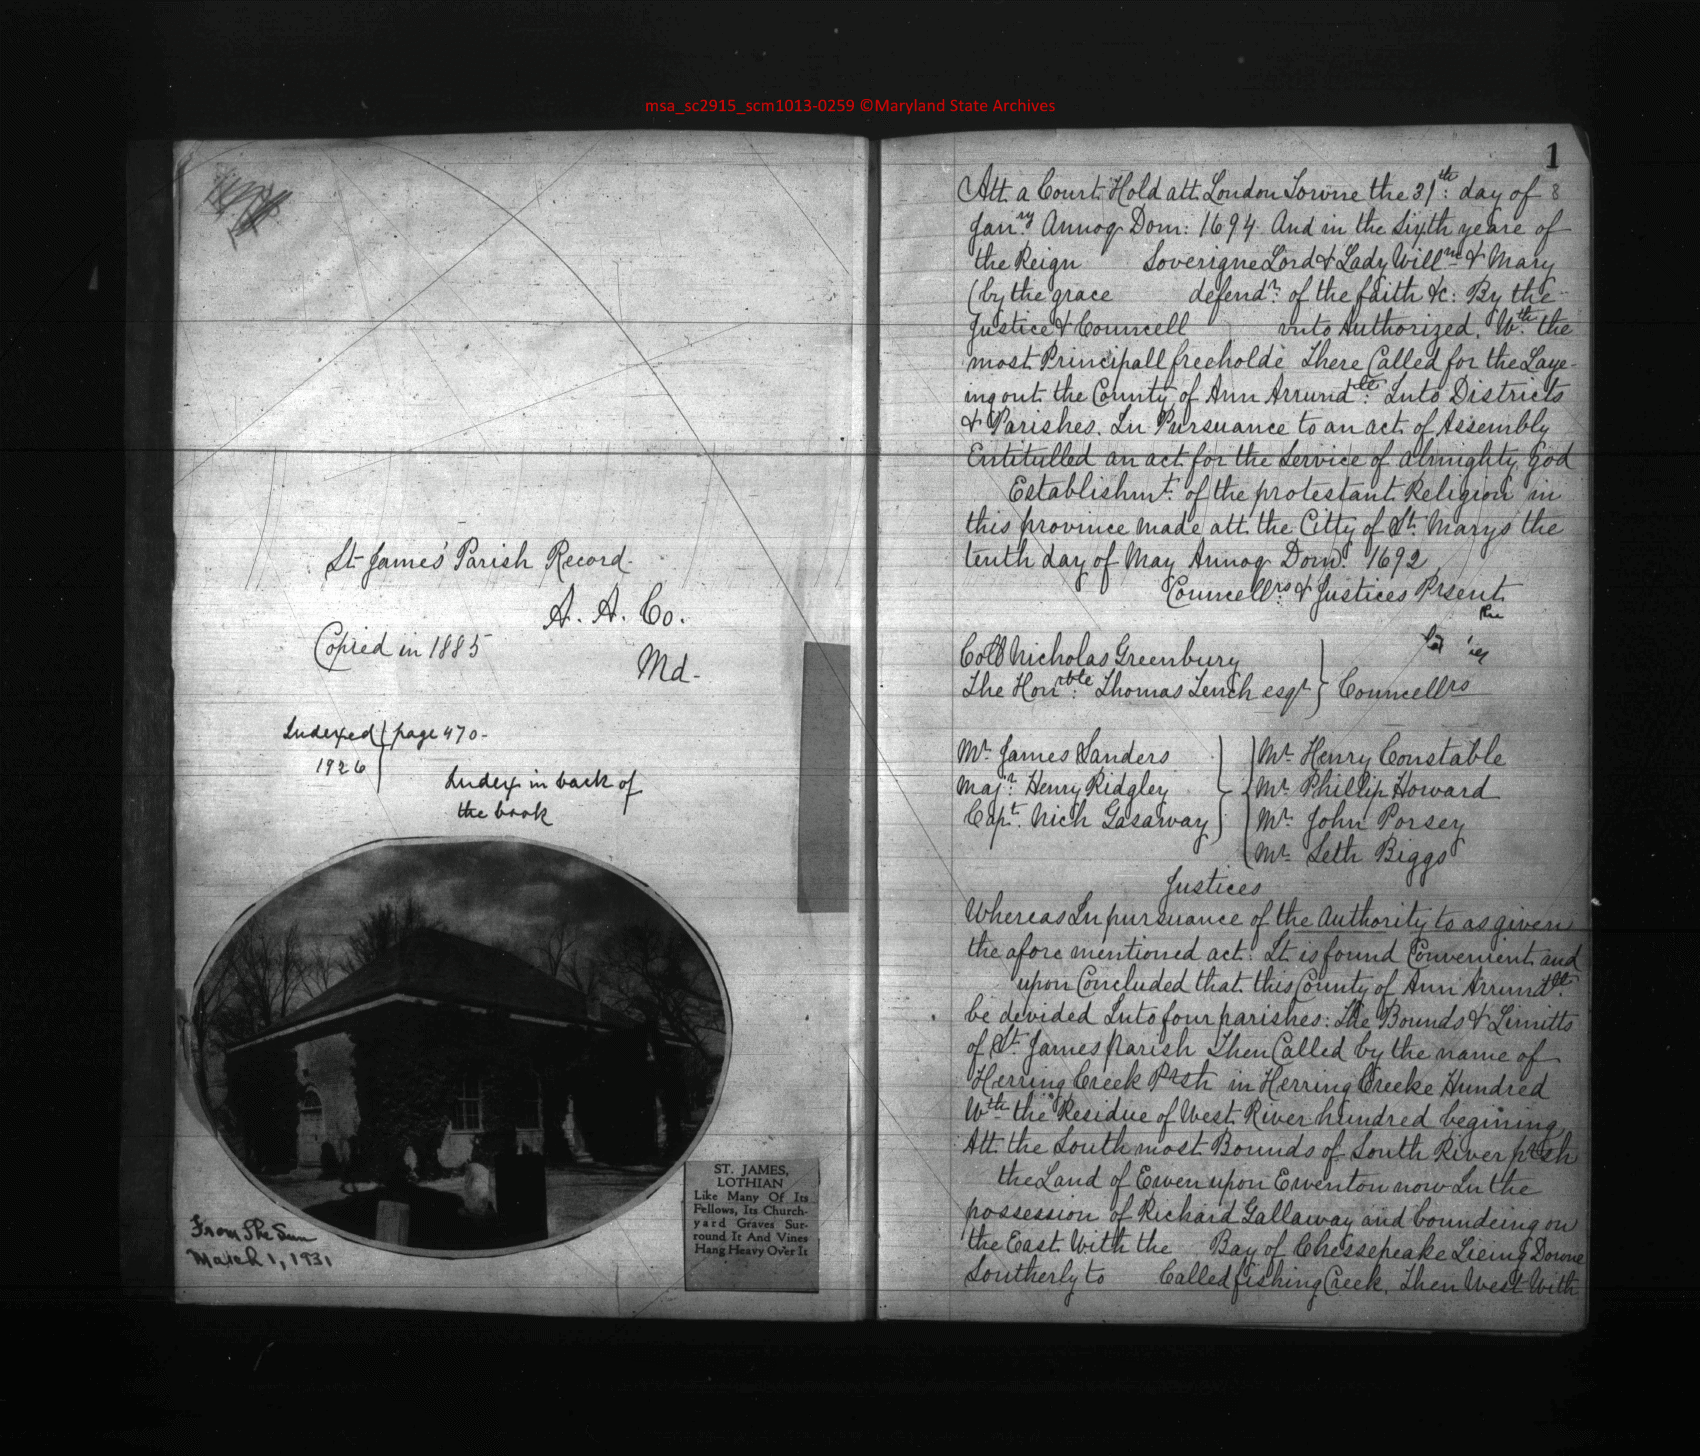 msa_sc2915_scm1013-0259 ©Maryland State Archives
St James' Parish Record.
A. A. Co.
Copied in 1885
Md.
Indexed page 470-
1926
Index in back of
the book
From The Sun
March 1, 1931
ST. JAMES,
LOTHIAN
Like Many Of Its
Fellows, Its Church-
yard Graves Sur-
round It And Vines
Hang Heavy Over It
1
Att a Court Hold att London Towne the 31th: day of 8
Janry Annoq Dom: 1694 And in the Sixth yeare of
the Reign Soverigne Lord & Lady Willm & Mary
(by the grace defendr: of the faith &c: By the
Justice & Councell unto Authorized. Wth: the
most Principall freeholde There Called for the Laye-
ing out the County of Ann Arrundll: Into Districts
& Parishes. In Pursuance to an act of Assembly
Entitulled an act for the Service of almighty god
Establishmt: of the protestant Religion in
this province made att the Citty of St. Marys the
tenth day of May Annoq Dom: 1692
Councellrs: & Justices Prsent
Coll Nicholas Greenbury
The Honrble: Thomas Tench esqr } Councellrs
Mr. James Sanders
Majr: Henry Ridgley
Capt. Nich Gasaway
Mr. Henry Constable
Mr. Phillip Howard
Mr. John Dorsey
Mr. Seth Biggs
Justices
Whereas In pursuance of the Authority to as given
the afore mentioned act: It is found Convenient and
upon Concluded that this County of Ann Arrundll:
be devided Into four parishes: The Bounds & Limitts
of St. James parish Then Called by the name of
Herring Creek Prsh in Herring Creeke Hundred
Wth the Residue of West River hundred begining
Att the South most Bounds of South River prsh
the Land of Ewen upon Ewenton now In the
possession of Richard Gallaway and boundeing on
the East With the Bay of Chessepeake Lieing Downe
Southerly to Called fishing Creek. Then West With